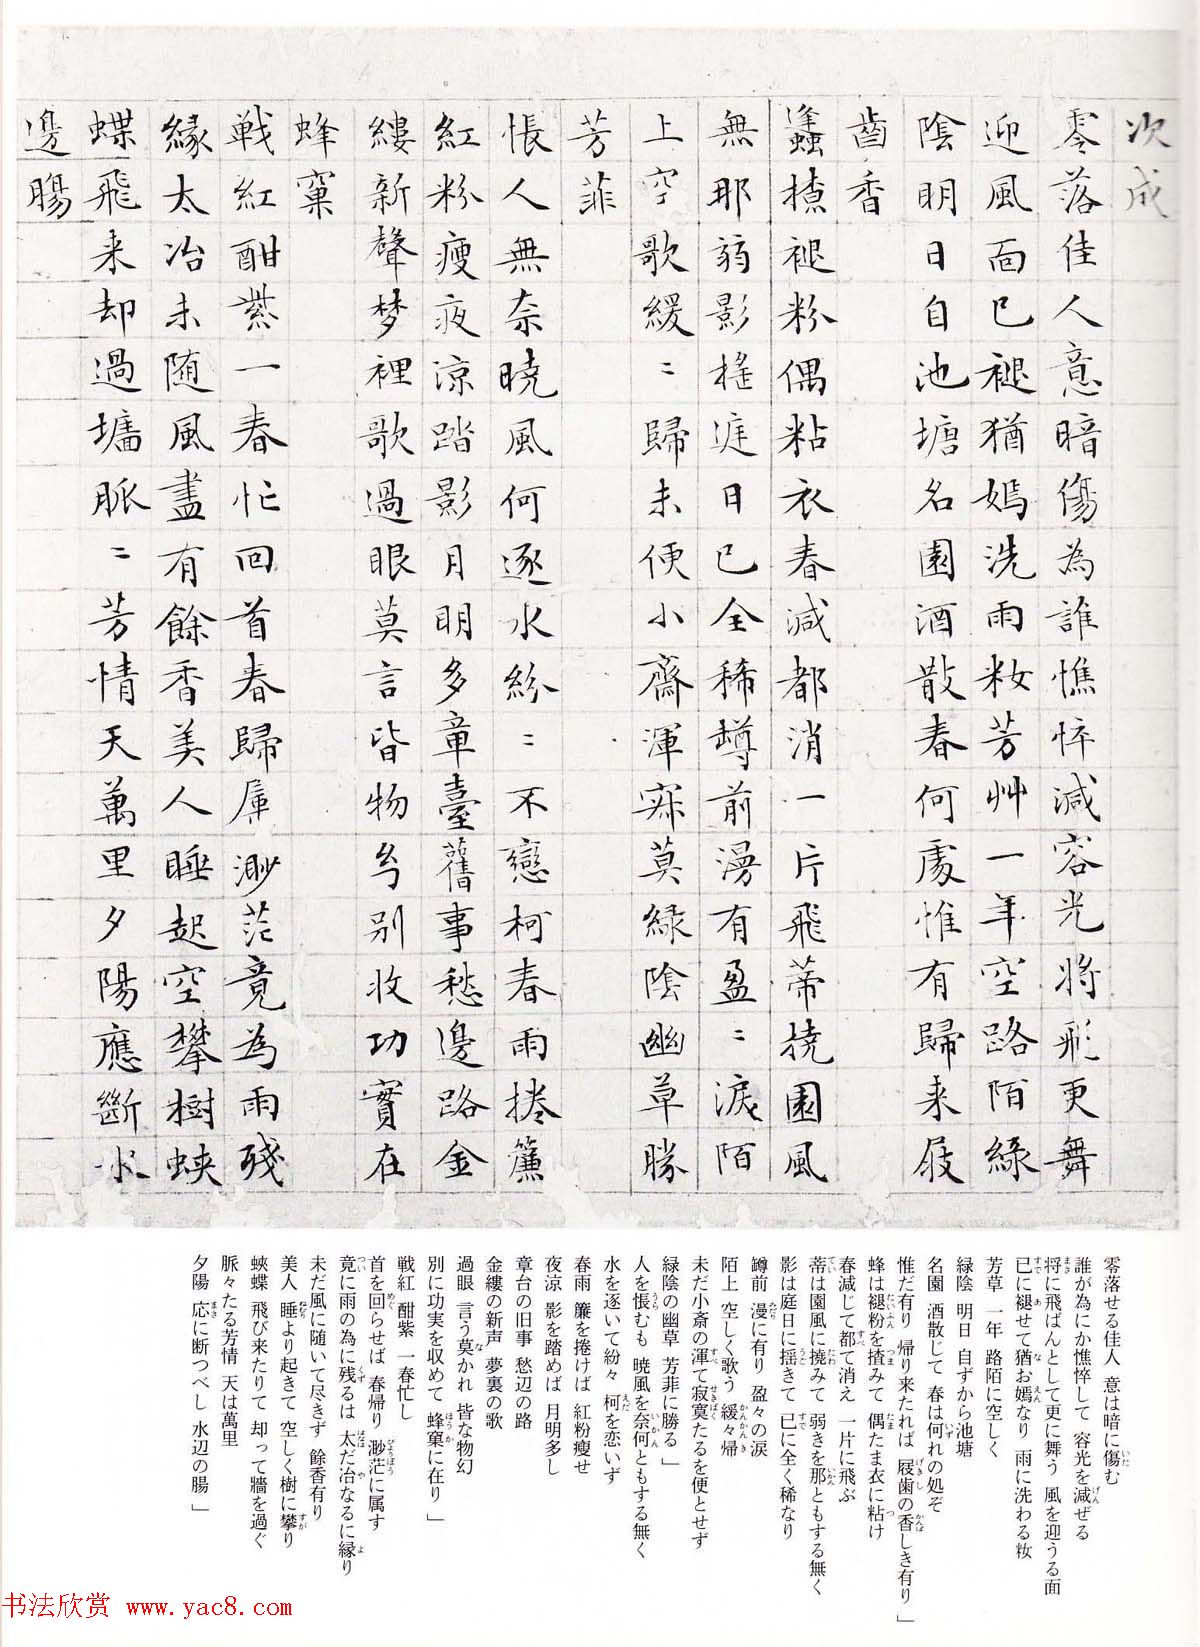 次成
零落佳人意暗傷為誰憔悴減容光将飛更舞
迎風面已褪猶嫣洗雨粧芳艸一年空路陌緑
陰明日自池塘名園酒散春何處惟有歸来屐
齒香
蜂𢷤褪粉偶粘衣春減都消一片飛蒂撓園風
無那弱影搖庭日已全稀罇前漫有盈〻淚陌
上空歌緩〻歸未便小齋渾寂莫緑陰幽草勝
芳菲
悵人無奈曉風何逐水紛〻不戀柯春雨捲簾
紅粉瘦夜涼踏影月明多章臺舊事愁邊路金
縷新聲梦裡歌過眼莫言皆物幻別收功實在
蜂窠
戦紅酣紫一春忙回首春歸屬渺茫竟為雨殘
緣太冶未随風盡有餘香美人睡起空攀樹蛺
蝶飛来却過墻脈〻芳情天萬里夕陽應斷水
邊腸
零落せる佳人 意は暗に傷む
誰が為にか憔悴して 容光を減ぜる
将に飛ばんとして更に舞う 風を迎うる面
已に褪せて猶お嫣なり 雨に洗わる粧
芳草 一年 路陌に空しく
緑陰 明日 自ずから池塘
名園 酒散じて 春は何れの処ぞ
惟だ有り 帰り来たれば 屐歯の香しき有り」
蜂は褪粉を揸みて 偶たま衣に粘け
春減じて都て消え 一片に飛ぶ
蒂は園風に撓みて 弱きを那ともする無く
影は庭日に揺きて 已に全く稀なり
罇前 漫に有り 盈々の涙
陌上 空しく歌う 緩々帰
未だ小斎の渾て寂莫たるを便とせず
緑陰の幽草 芳菲に勝る」
人を悵むも 暁風を奈何ともする無く
水を逐いて紛々 柯を恋いず
春雨 簾を捲けば 紅粉痩せ
夜涼 影を踏めば 月明多し
章台の旧事 愁辺の路
金縷の新声 夢裏の歌
過眼 言う莫かれ 皆な物幻
別に功実を収めて 蜂窠に在り」
戦紅 酣紫 一春忙し
首を回らせば 春帰り 渺茫に属す
竟に雨の為に残るは 太だ冶なるに縁り
未だ風に随いて尽きず 餘香有り
美人 睡より起きて 空しく樹に攀り
蛺蝶 飛び来たりて 却って牆を過ぐ
脈々たる芳情 天は萬里
夕陽 応に断つべし 水辺の腸」
书法欣赏 www.yac8.com